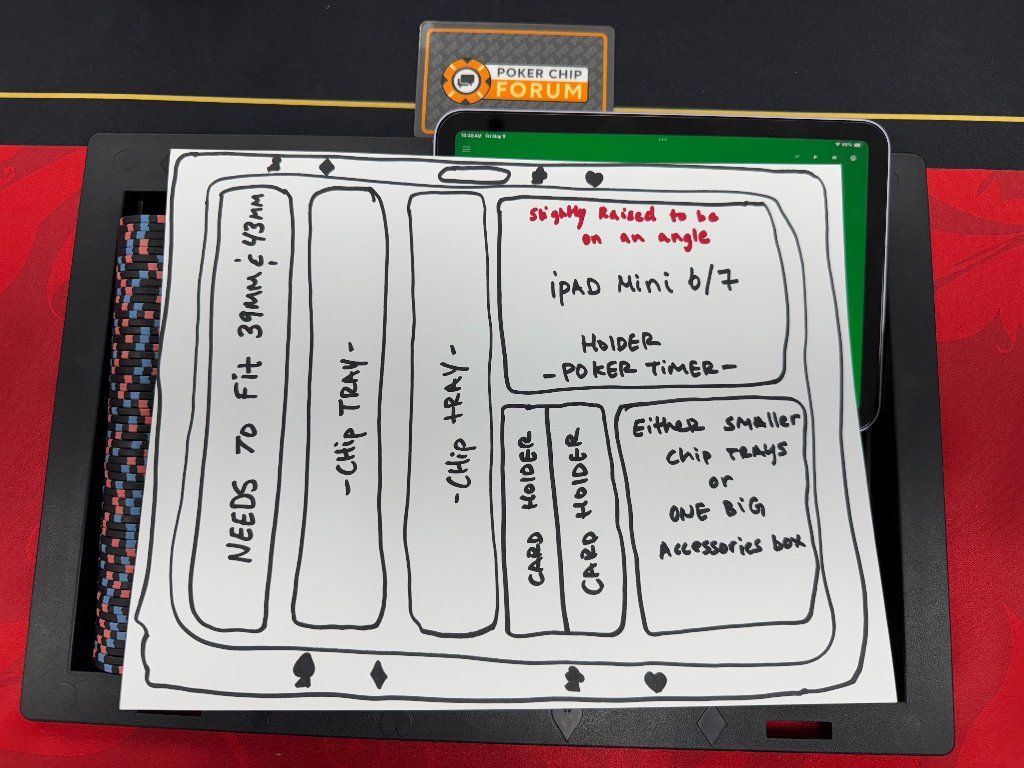 POKER CHIP
FORUM
10:40 AM Fri May 9
80%
NEEDS TO Fit 39MM & 43MM
-CHip TRAY-
-CHip tRAY-
Slightly Raised to be
on an angle
ipAD Mini 6/7
HOLDER
-POKER TIMER-
CARD HOlDER
CARD HOlDER
EitHER SMAllER
CHip TRAYS
or
ONE BiG
Accessories box